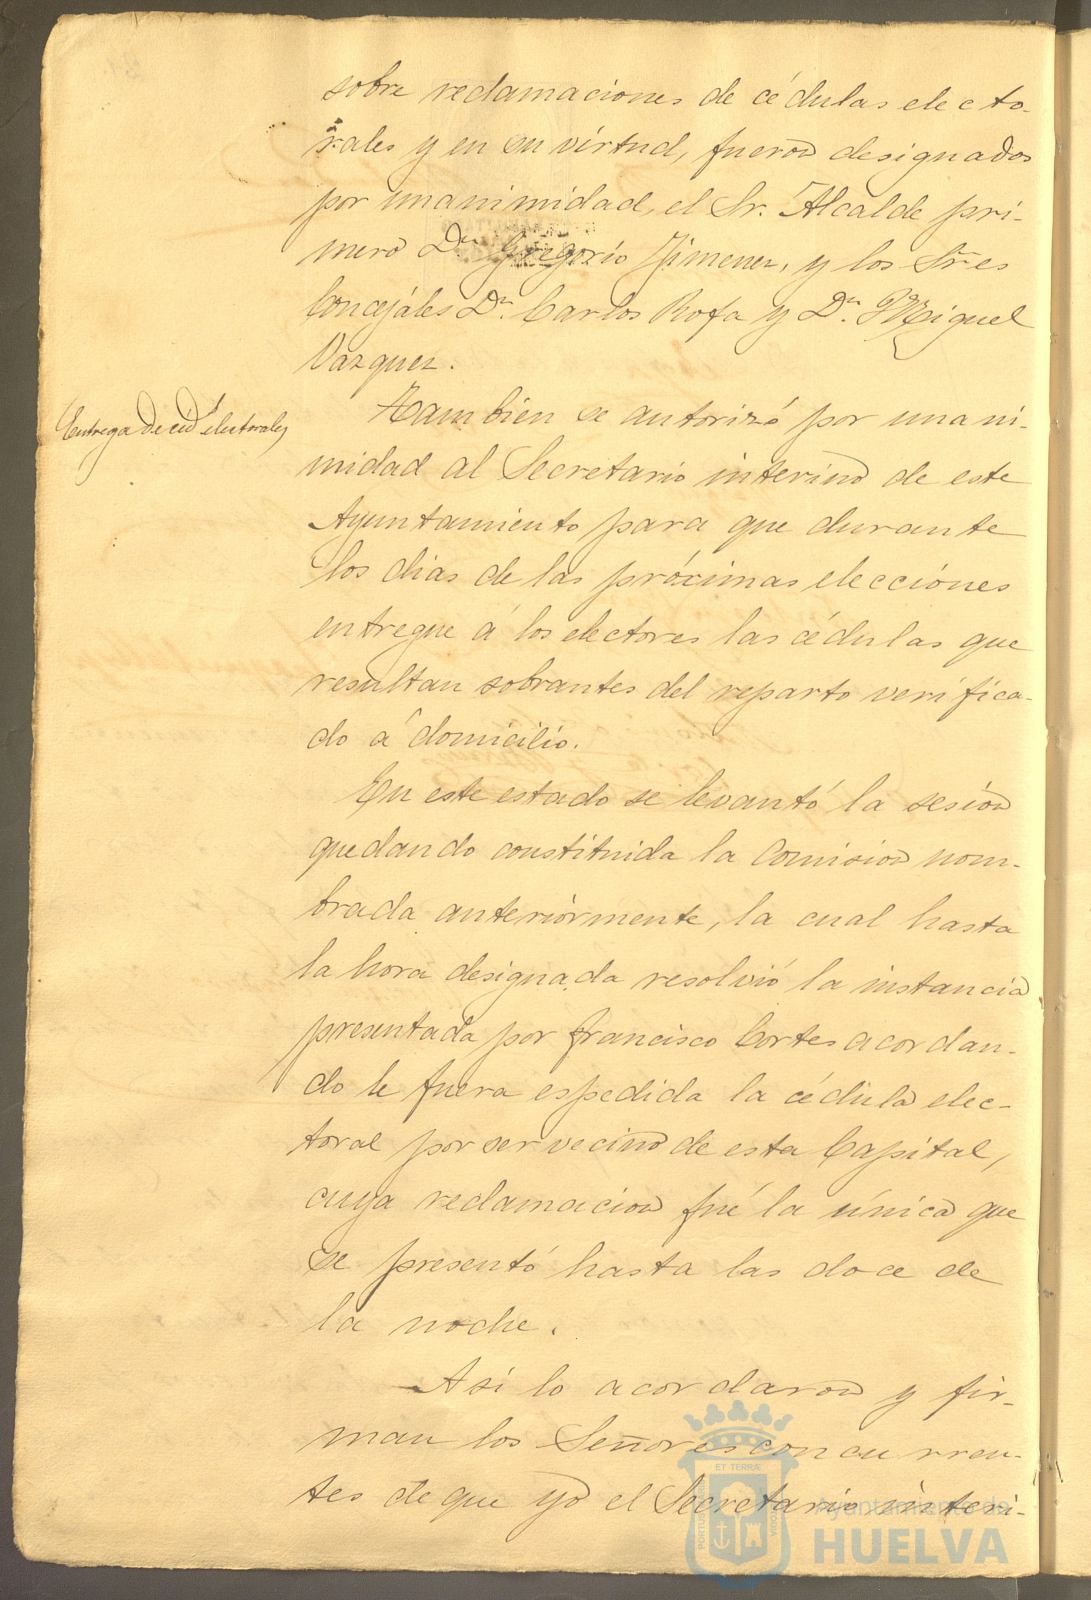 sobre reclamaciones de cédulas electo-
rales y en su virtud, fueron designados
por unanimidad, el Sr. Alcalde pri-
mero Dn. Gregorio Jimenez, y los Sres
Concejáles Dn. Carlos Rofa y Dn. Miguel
Vazquez.
Entrega de céd. electorales
Tambien se autorizó por unani-
midad al Secretario interino de este
Ayuntamiento para que durante
los dias de las próximas elecciónes
entregue á los electores las cédulas que
resultan sobrantes del reparto verifica-
do á domicilio.
En este estado se levantó la sesion
quedando constituida la Comision nom-
brada anteriórmente, la cual hasta
la hora designada resolvió la instancia
presentada por francisco Cortes acordan-
do le fuera espedida la cédula elec-
toral por ser vecino de esta Capital,
cuya reclamacion fué la única que
se presentó hasta las doce de
la noche.
Asi lo acordaron y fir-
man los Señores concurren-
tes de que yo el Secretario interi-
ET TERRÆ
PORTUS
Ayuntamiento de
HUELVA